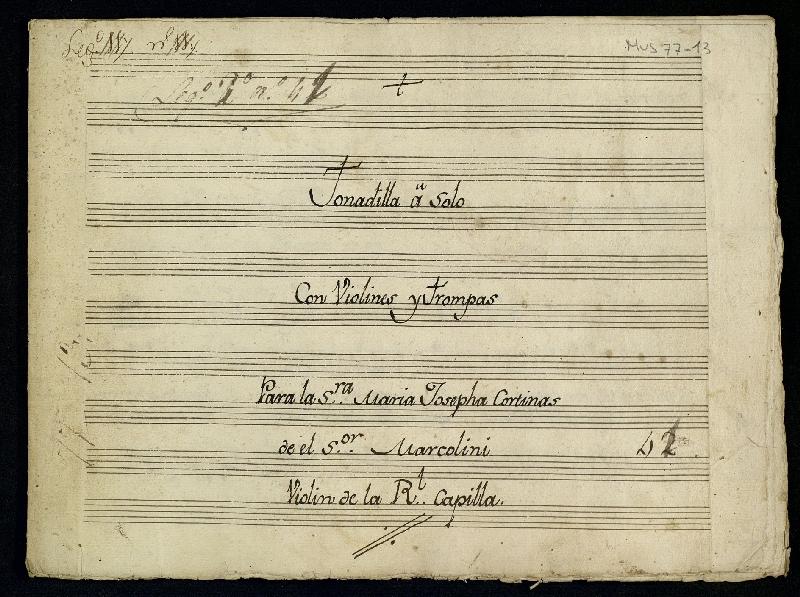 Leg.º nº
Mus 77-13
Leg.º 1º n.º 42
+
Tonadilla â solo
Con Violines y trompas
Para la S.ra Maria Josepha Cortinas
de el S.or Marcolini
42
Violin de la R.l Capilla.